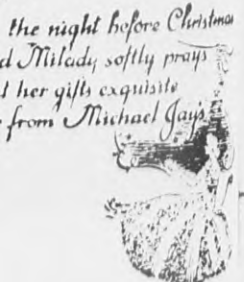 the night before Christmas
d Milady softly prays
t her gifts exquisite
from Michael Jay's